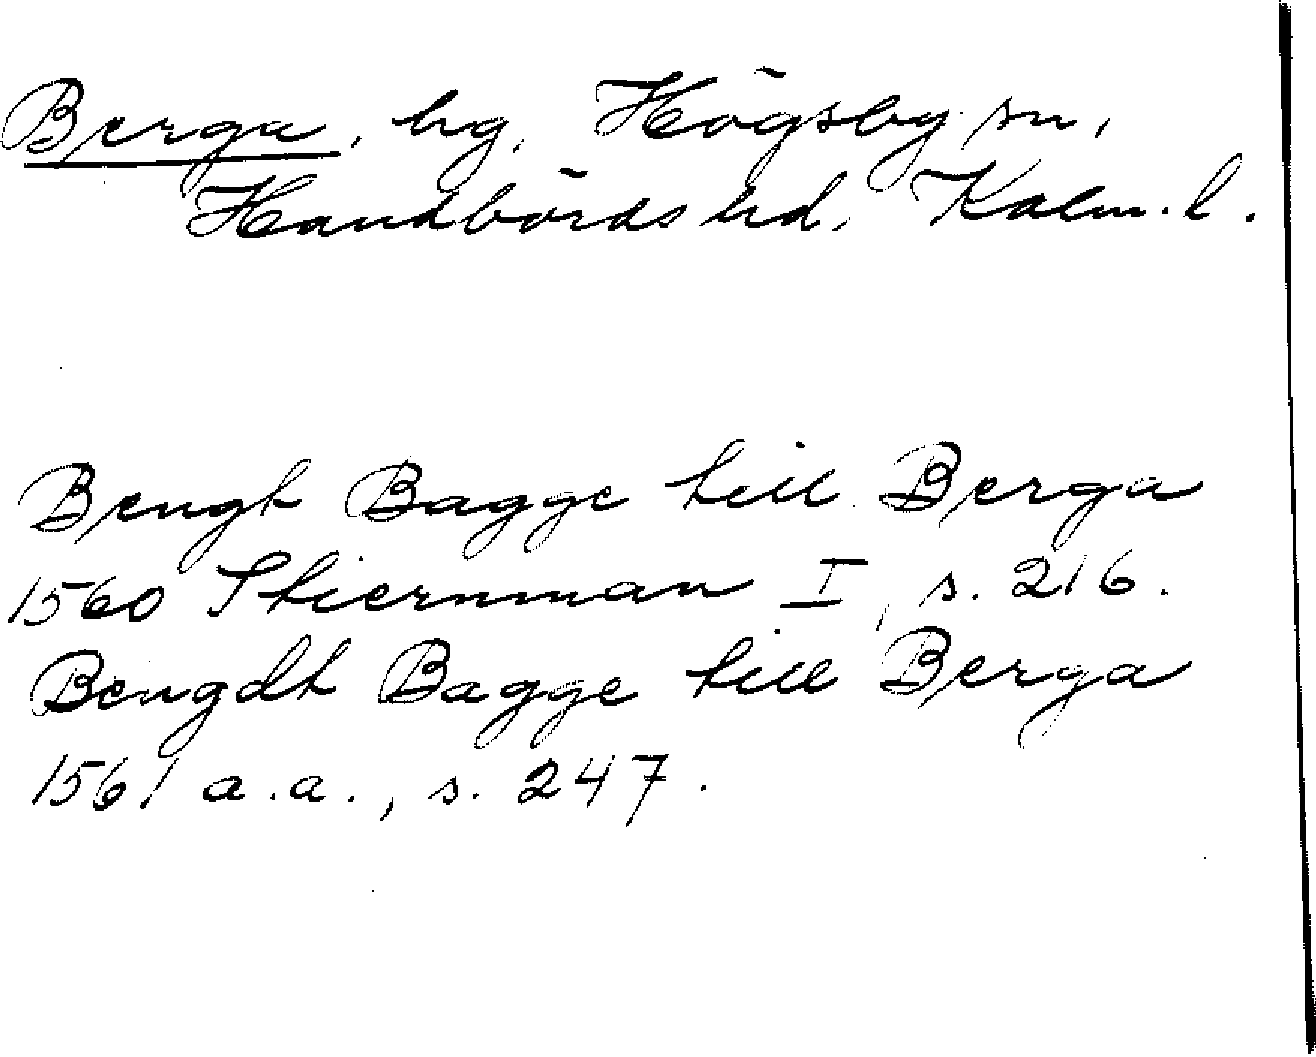 Berga, hg, Högsby sn,
Handbörds hd, Kalm. l.
Bengt Bagge till Berga
1560 Stiernman I, s. 216.
Bengdt Bagge till Berga
1561 a.a., s. 247.